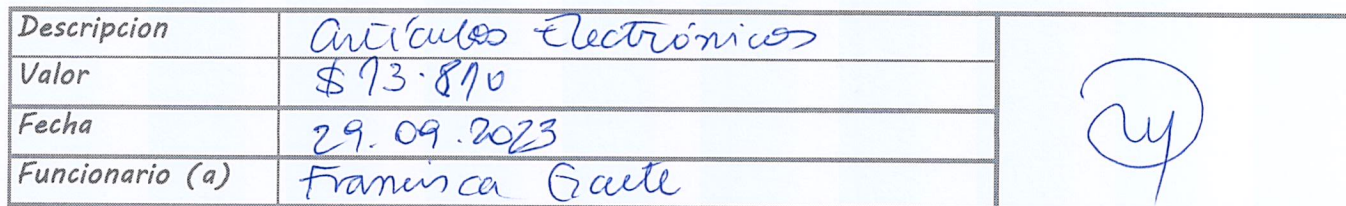 Descripcion artículos Electrónicos
Valor $13.810
Fecha 29.09.2023
Funcionario (a) Francisca Gaete